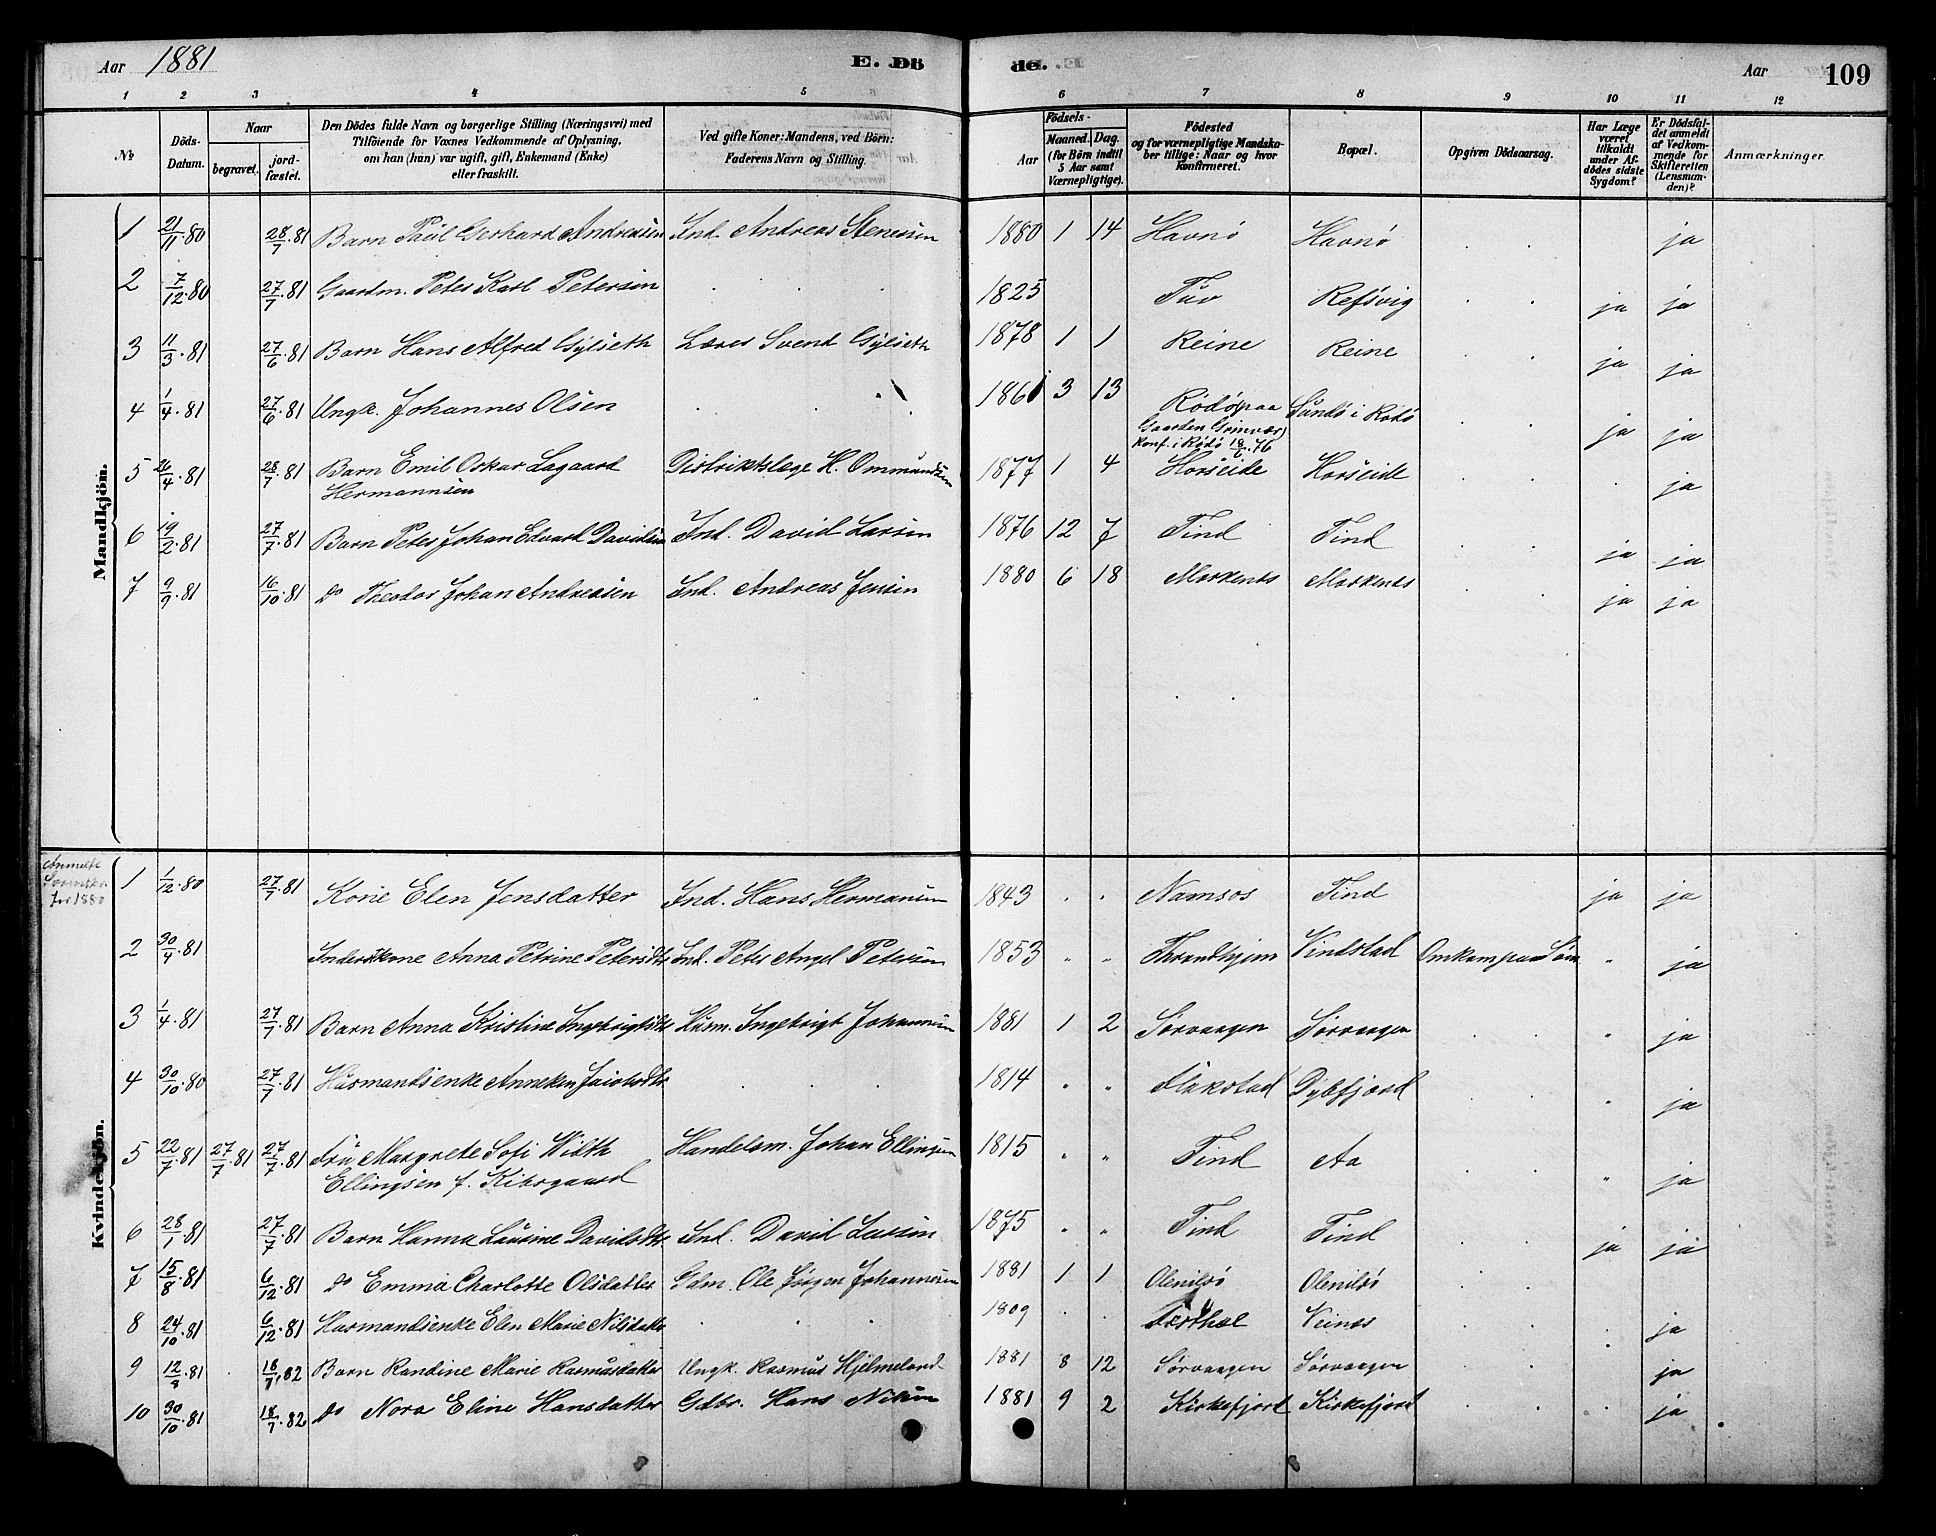 Aar 1881 E. Dö de. Aar 109
1 2 3 4 5 6 7 8 9 10 11 12
№ Döds-Datum. Naar begravet. jord-fæstet. Den Dödes fulde Navn og borgerlige Stilling (Næringsvei) med Tilföiende for Voxnes Vedkommende af Oplysning, om han (hun) var ugift, gift, Enkemand (Enke) eller fraskilt. Ved gifte Koner: Mandens, ved Börn: Faderens Navn og Stilling. Födsels- Aar Maaned. Dag. (for Börn indtil 5 Aar samt Værnepligtige). Födested og for værnepligtige Mandskaber tillige: Naar og hvor Konfirmeret. Bopæl. Opgiven Dödsaarsag. Har Læge været tilkaldt under Afdödes sidste Sygdom? Er Dödsfaldet anmeldt af Vedkommende for Skifteretten (Lensmanden)? Anmærkninger.
Mandkjön.
1 21/11.80 28/7.81 Barn Paul Gerhard Andreasen Ind. Andreas Stenesen 1880 1 14 Havnø Havnø ja
2 7/12.80 27/7.81 Gaardm. Peter Karl Petersen 1825 Tuv Refsvig ja ja
3 11/3.81 27/6.81 Barn Hans Alfred Gylseth Lærer Svend Gylseth 1878 1 1 Reine Reine ja ja
4 1/4.81 27/6.81 Ungk. Johannes Olsen 1861 3 13 Rødø (paa Sundø i Rødø ja ja
Gaarden Grimvær)
Konf. i Rødø 18/6.76
5 26/4.81 28/7.81 Barn Emil Oskar Lagaard Distriktslæge H. Ommundsen 1877 1 4 Horseide Horseide ja
Hermannsen
6 19/2.81 27/7.81 Barn Peter Johan Edvard Davidsen Ind. David Larsen 1876 12 7 Tind Tind ja ja
7 9/9.81 16/10.81 do Theodor Johan Andreasen Ind. Andreas Jensen 1880 6 18 Moskenes Moskenes ja ja
Kvindekjön.
for 1880
1 1/12.80 27/7.81 Kone Elen Jensdatter Ind. Hans Hermansen 1843 Namsos Tind ja ja
2 30/4.81 Inderstkone Anna Petrine Petersdtr Ind. Peter Angel Petersen 1853 " " Throndhjem Vindstad Omkom paa Søen " ja
3 1/4.81 27/7.81 Barn Anna Kristine Ingebrigtsdtr Husm. Ingebrigt Johannesen 1881 1 2 Sørvaagen Sørvaagen " ja
4 30/10.80 27/7.81 Husmandsenke Anneken Jacobsdtr 1814 " " Flakstad Dybfjord " ja
5 22/7.81 27/7.81 27/7.81 Fru Margrete Sofi Wilth Handelsm. Johan Ellingsen 1815 " " Tind Aa " ja
Ellingsen f. Kibsgaard
6 28/1.81 27/7.81 Barn Hanna Lausine Davidsdtr Ind. David Larsen 1875 " " Tind Tind ja ja
7 15/8.81 6/12.81 do Emma Charlotte Olsdatter Gdm. Ole Jørgen Johannesen 1881 1 1 Olenilsø Olenilsø
8 24/10.81 6/12.81 Husmandsenke Elen Marie Nilsdatter 1809 Veines ja
9 12/8.81 18/7.82 Barn Randine Marie Rasmusdatter Ungk. Rasmus Hjelmeland 1881 8 12 Sørvaagen Sørvaagen ja
10 30/10.81 18/7.82 do Nora Eline Hansdatter Gdbr. Hans Nilsen 1881 9 2 Kirkefjord Kirkefjord ja